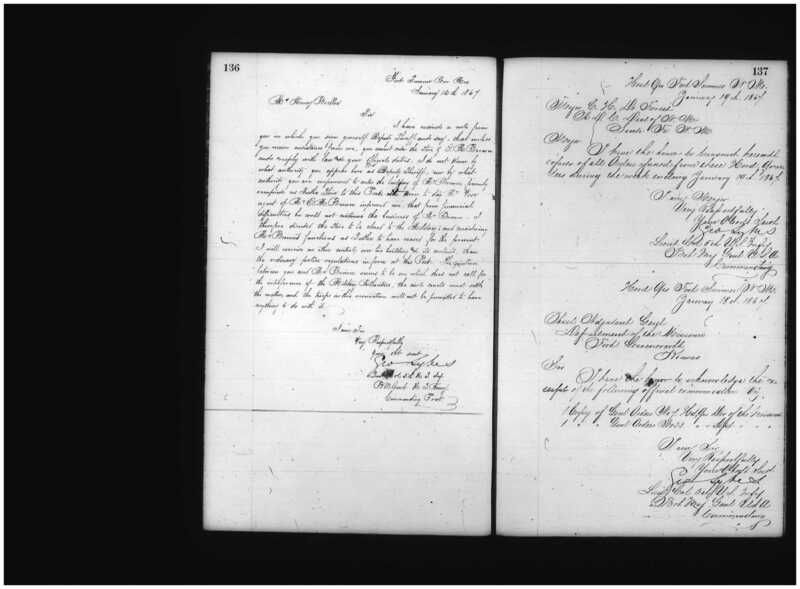 136
Fort Sumner New Mex
January 16th 1867
Mr Henry
Sir
I have received a note from
you in which you sign yourself Deputy Sheriff and say, that unless
you receive instructions from me, you cannot close the store of
and comply with law and your Official duties. I do not know by
what authority you appear here as Deputy Sheriff, nor by what
authority you are empowered to close the building of Mr
as Sutler Store to this Post to day Mr
agent of Mr informs me, that from financial
difficulties he could not continue the business of Mr I
therefore directed the store to be closed to the Soldiers and considering
Mr functions as Sutler to have ceased for the present.
I will exercise no other control over his building & its contents than
the ordinary police regulations in force at this Post. The question
between you and Mr seems to be one which does not call for
the interference of the Military Authorities, the civil courts must settle
the matter, and the troops at this reservation will not be permitted to have
anything to do with it.
I am Sir
Very Respectfully
Your obt servt
Geo Sykes
Lieut Col 5th U.S. Inf
B M Genl U.S. Army
Commanding Post
137
Head Qrs Fort Sumner N. Mx.
January 19th 1867
Major C. H. De Forrest
A.A.A.G. Dist of N. Mx
Santa Fe N. Mx
Major
I have the honor to transmit herewith
copies of all Orders issued from these Head Quar-
ters during the week ending January 19th 1867.
I am Major
Very Respectfully
Your Obt Servt
Geo Sykes
Lieut Col 5th U.S. Inf'y
Bvt Maj Genl U.S.A.
Commanding
Head Qrs Fort Sumner N. Mx
January 19th 1867
Asst Adjutant Genl
Department of the Missouri
Fort Leavenworth
Kansas
Sir
I have the honor to acknowledge the re-
ceipt of the following official communication viz
1 Copy of Genl Order No Hd Qrs Dep of the Missouri
1 " " Genl Orders No 33 " "
I am Sir
Very Respectfully
Your Obdt Servt
Geo Sykes
Lieut Col 5th U.S. Inf'y
Bvt Maj Genl U.S.A
Commanding